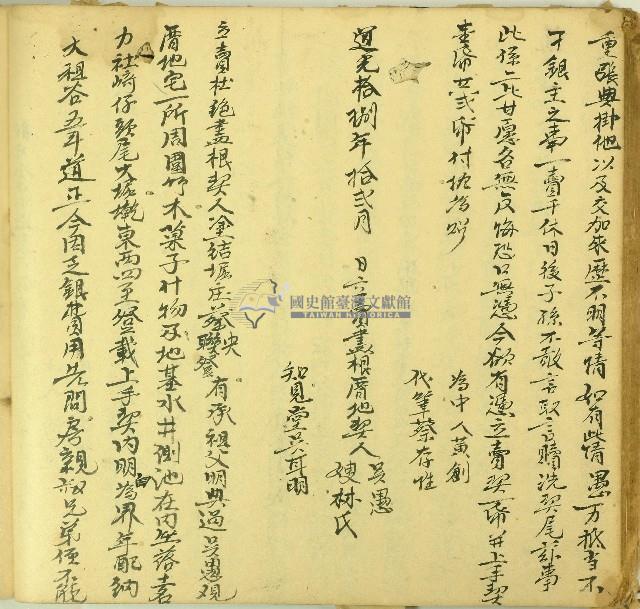 重張典掛他以及交加來歷不明等情如有此情愚一力抵當不
干銀主之事一賣千休日後子孫不敢言取言贖洗契尾訟事
此係二比甘愿各無反悔恐口無憑今欲有憑立賣契一紙并上手契
壹紙共弍紙付执為炤
為中人黃創
代筆蔡存性
道光拾捌年拾弍月 日立賣盡根厝地契人吳愚
嫂林氏
知見堂兄耳明
立賣杜絕盡根契人塗結堀庄蔡 聯登有承祖父明典過吳愚观
厝地宅一所周圍竹木菓子什物及地基水井側池在內坐落土名
力社崎仔頭尾大堀墘東西四至登載上手契內明白為界年配納
大祖谷五斗道正今因乏銀費用先問房親叔兄弟侄不能
國史館臺灣文獻館
TAIWAN HISTORICA